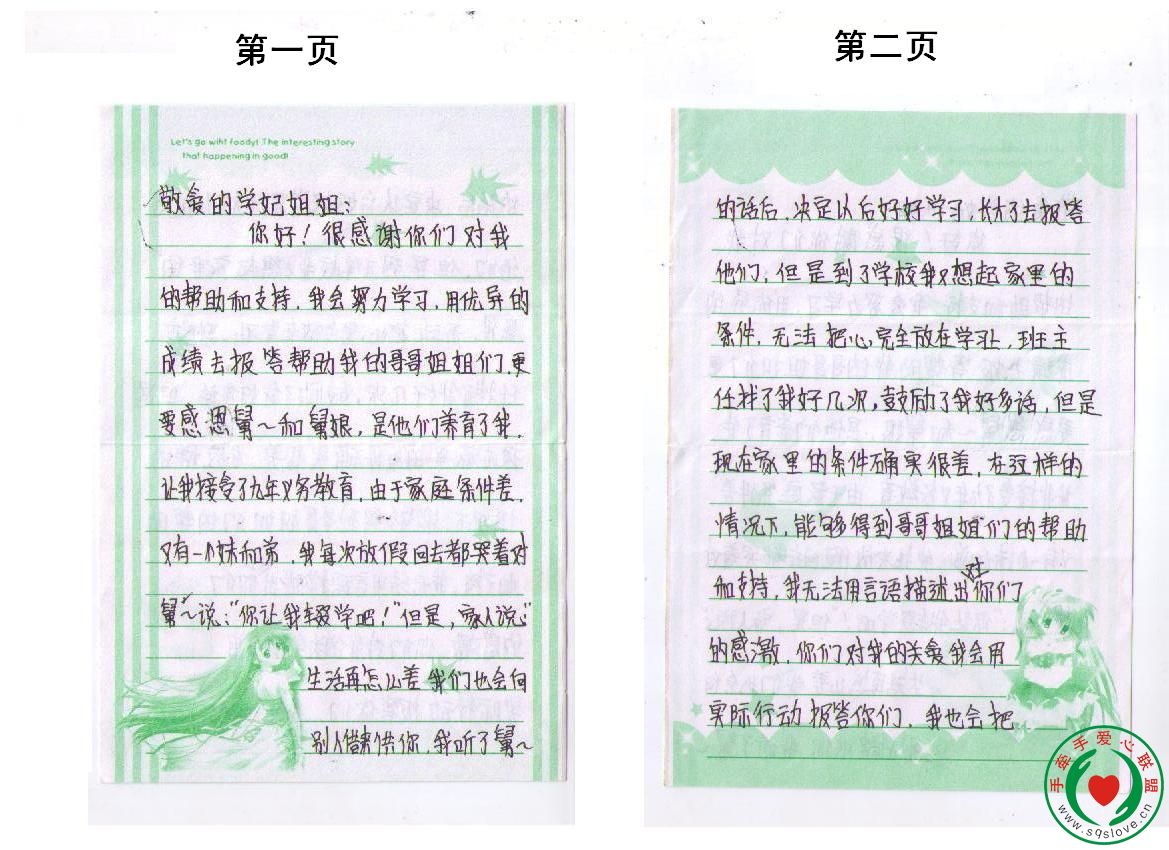 第一页
Let's go wiht foody! The interesting story
that happening in good!
敬爱的学妃姐姐:
你好!很感谢你们对我
的帮助和支持,我会努力学习,用优异的
成绩去报答帮助我的哥哥姐姐们,更
要感恩舅~和舅娘,是他们养育了我,
让我接受了九年义务教育,由于家庭条件差,
又有一个妹和弟,我每次放假回去都哭着对
舅~说:“你让我辍学吧!”但是,家人说“
生活再怎么差我们也会向
别人借来供你,我听了舅~
第二页
的话后,决定以后好好学习,长大了去报答
他们,但是到了学校我又想起家里的
条件,无法把心完全放在学习上,班主
任找了我好几次,鼓励了我好多话,但是
现在家里的条件确实很差,在这样的
情况下,能够得到哥哥姐姐们的帮助
和支持,我无法用言语描述出对你们
的感激,你们对我的关爱我会用
实际行动报答你们,我也会把
手牵手爱心联盟
www.sqslove.cn